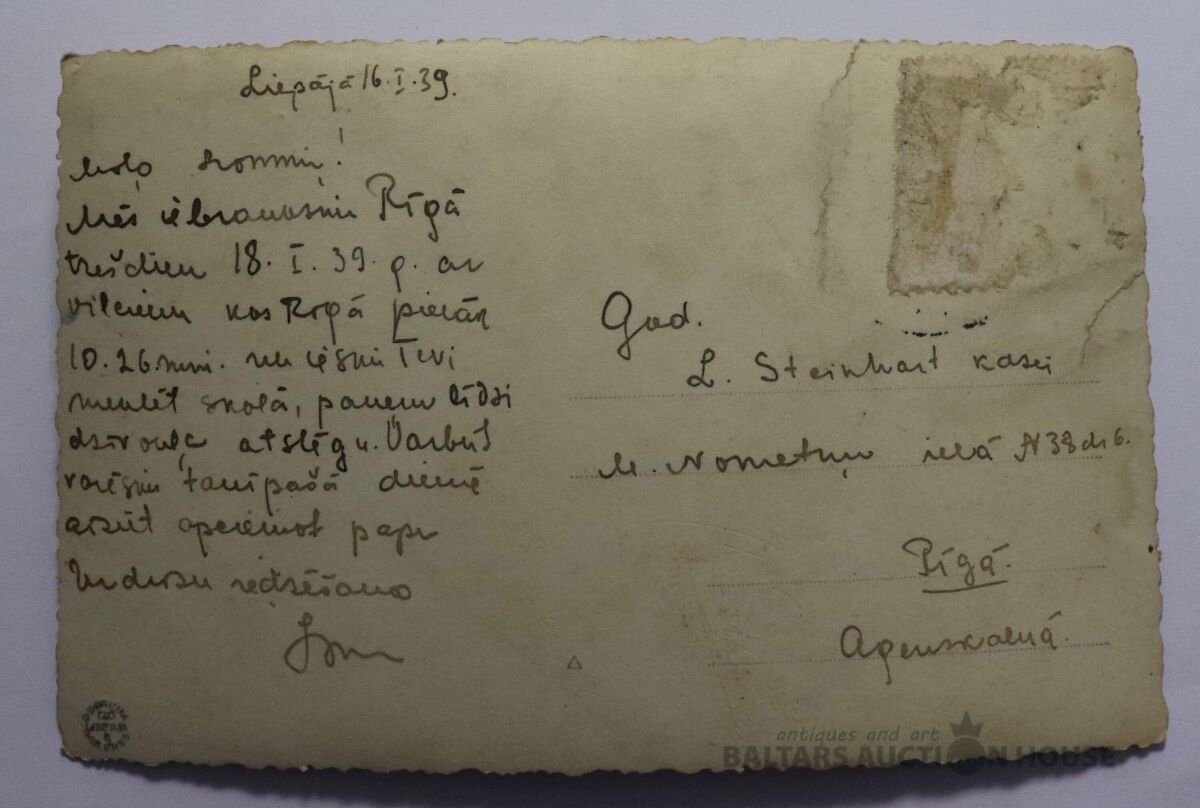 Liepājā 16.I.39.
Mēs iebrauksim Rīgā
trešdien 18. I. 39. g. ar
vilcienu kas Rīgā pienāk
10.26 min. un iesim Tevi
meklēt skolā, paņem līdzi
dzīvokļa atslēgu. Varbūt
varēsim tanīpašā dienā
aiziet apciemot
Uz drīzu redzēšanos
God.
L. Steinhart kdzei
M. Nometņu ielā N 38 dz 6.
Rīgā.
Agenskalnā.
antiques and art
BALTARS AUCTION HOUSE